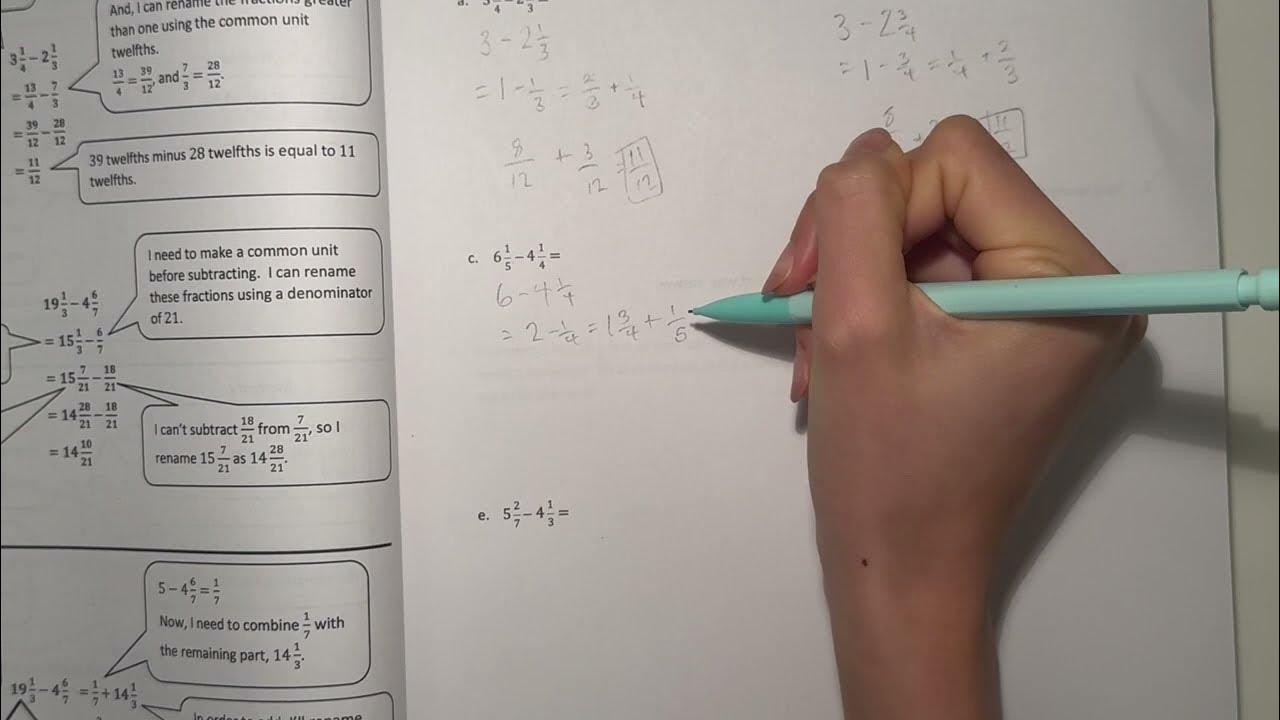 And, I can rename the fractions greater
than one using the common unit
twelfths.
13/4 = 39/12, and 7/3 = 28/12.
3 1/4 − 2 1/3
= 13/4 − 7/3
= 39/12 − 28/12
= 11/12
39 twelfths minus 28 twelfths is equal to 11
twelfths.
I need to make a common unit
before subtracting. I can rename
these fractions using a denominator
of 21.
19 1/3 − 4 6/7
= 15 1/3 − 6/7
= 15 7/21 − 18/21
= 14 28/21 − 18/21
= 14 10/21
I can't subtract 18/21 from 7/21, so I
rename 15 7/21 as 14 28/21.
5 − 4 6/7 = 1/7
Now, I need to combine 1/7 with
the remaining part, 14 1/3.
19 1/3 − 4 6/7 = 1/7 + 14 1/3
In order to add, I'll rename
a.
3 − 2 1/3
= 1 − 1/3 = 2/3 + 1/4
8/12 + 3/12 = 11/12
3 − 2 3/4
= 1 − 3/4 = 1/4 + 2/3
8
c. 6 1/5 − 4 1/4 =
6 − 4 1/4
= 2 − 1/4 = 1 3/4 + 1/5
e. 5 2/7 − 4 1/3 =